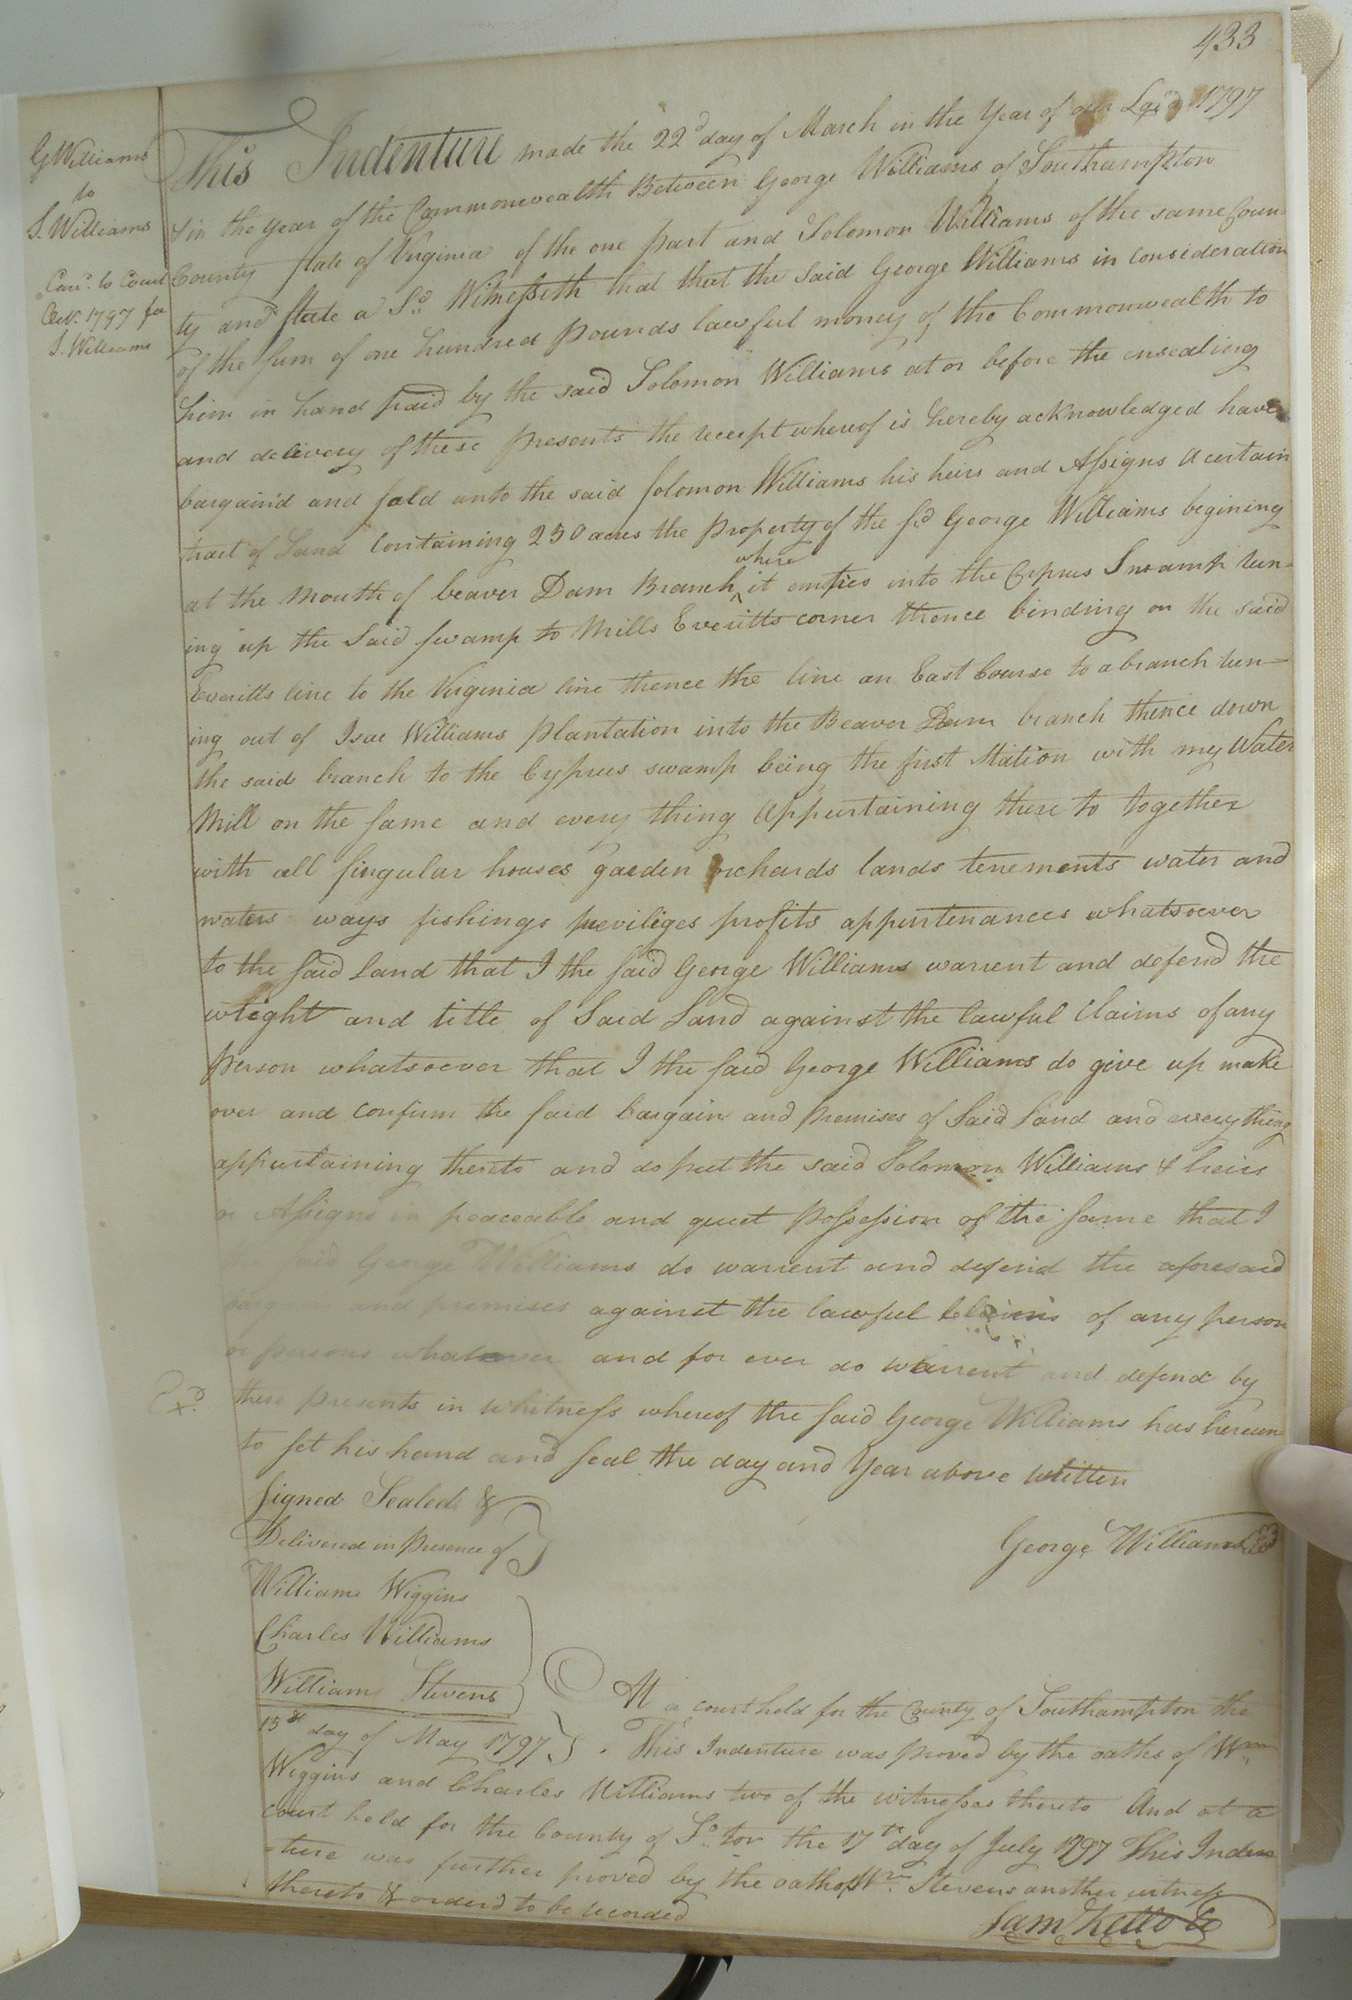 433
G Williams
to
S. Williams
Exn.d to Court
Octr. 1797 for
S. Williams
This Indenture made the 22d day of March in the Year of our Lord 1797
& in the year of the Commonwealth Between George Williams of Southampton
County state of Virginia of the one part and Solomon Williams of the same Coun-
ty and State a Sd. Witnesseth that that the said George Williams in consideration
of the sum of one hundred pounds lawful money of the Commonwealth to
him in hand paid by the said Solomon Williams at or before the ensealing
and delivery of these presents the receept whereof is hereby acknowledged have
bargain'd and sold unto the said Solomon Williams his heirs and Assigns a certain
tract of Land Containing 250 acres the property of the sd George Williams begining
at the Mouth of beaver Dam Branch where it emties into the Cyprus Swamp run-
ing up the Said swamp to Mills Everitts corner thence binding on the said
Everitts line to the Virginia line thence the line an East Course to a branch run-
ing out of Isac Williams plantation into the Beaver Dam branch thence down
the said branch to the Cyprus swamp being the first station with my Water
Mill on the same and every thing appurtaining there to together
with all singular houses garden orchards lands tenements water and
waters ways fishings previliges profits appurtenances whatsoever
to the said Land that I the said George Williams warrent and defend the
wright and title of Said Land against the lawful Claims of any
person whatsoever that I the said George Williams do give up make
over and confirm the said bargain and premises of Said Land and everything
appurtaining thereto and do put the said Solomon Williams & heirs
or Assigns in peaceable and quiet possession of the same that I
the said George Williams do warrent and defend the aforesaid
bargain and premises against the lawful Claims of any person
or persons whatever and for ever do warrent and defend by
these presents in whitness whereof the said George Williams has hereun
to set his hand and seal the day and Year above written
Exd.
Signed Sealed &
Delivered in presence of
George Williams
William Wiggins
Charles Williams
William Stevens
At a court held for the County of Southampton the
15th day of May 1797 This Indenture was proved by the oaths of Wm
Wiggins and Charles Williams two of the witnesses thereto And at a
court held for the County of So.ton the 17th day of July 1797 This Inden
=ture was further proved by the oath of Wm. Stevens another witness
thereto & orderd to be recorded
Saml Kello Cc